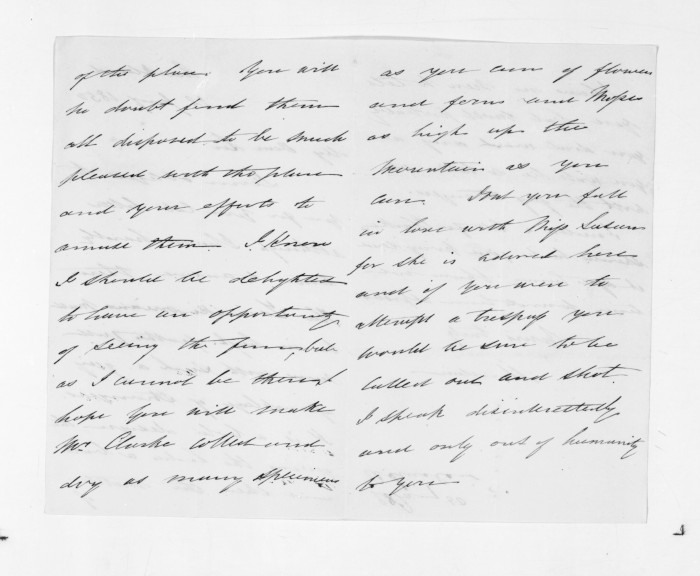 of the place. You will
no doubt find them
all disposed to be much
pleased with the place
and your efforts to
amuse them. I Know
I should be delighted
to have an opportunity
of seeing the but
as I cannot be there I
hope you will make
Mr Clarke collect and
dry as many specimens
as you can of flowers
and ferns and Mosses
as high up the
Mountain as you
can. Dont you fall
in love with Miss Susan
for she is adored here
and if you were to
attempt a trespass you
would be sure to be
called out and shot.
I speak disinterestedly
and only out of humanity
to you